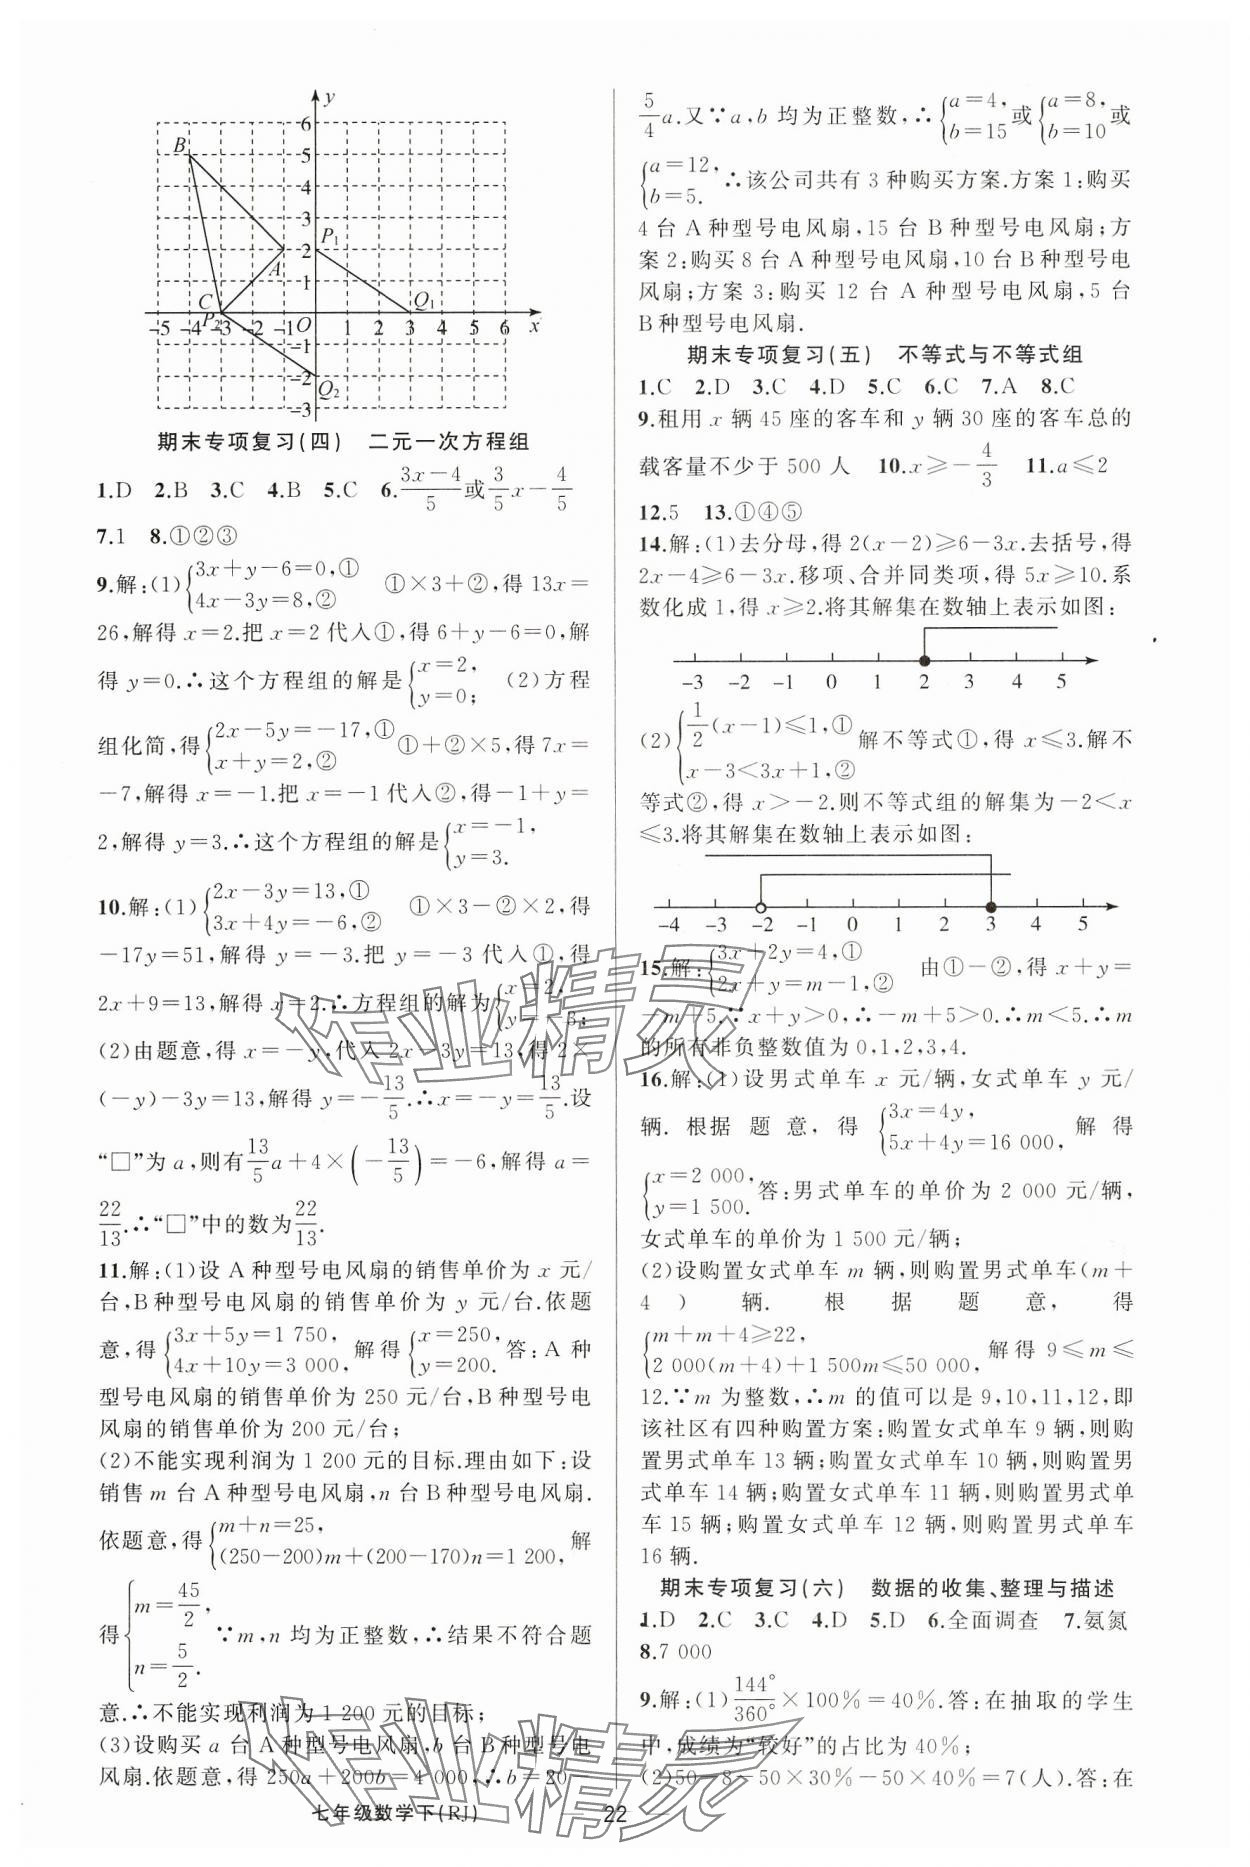 y
6
5
4
3
2
1
B
P₁
A
C
P₂
Q₁
-5 -4 -3 -2 -1 O 1 2 3 4 5 6 x
-1
-2
-3
Q₂
期末专项复习(四) 二元一次方程组
1.D 2.B 3.C 4.B 5.C 6.(3x-4)/5或3/5x-4/5
7.1 8.①②③
9.解:(1){3x+y-6=0,① 4x-3y=8,② ①×3+②,得 13x=
26,解得 x=2.把 x=2 代入①,得 6+y-6=0,解
得 y=0.∴这个方程组的解是{x=2, y=0; (2)方程
组化简,得{2x-5y=-17,① x+y=2,② ①+②×5,得 7x=
-7,解得 x=-1.把 x=-1 代入②,得-1+y=
2,解得 y=3.∴这个方程组的解是{x=-1, y=3.
10.解:(1){2x-3y=13,① 3x+4y=-6,② ①×3-②×2,得
-17y=51,解得 y=-3.把 y=-3 代入①,得
2x+9=13,解得 x=2.∴方程组的解为{x=2, y=-3;
(2)由题意,得 x=-y,代入 2x-3y=13,得 2×
(-y)-3y=13,解得 y=-13/5.∴x=-y=13/5.设
“□”为 a,则有13/5a+4×(-13/5)=-6,解得 a=
22/13.∴“□”中的数为22/13.
11.解:(1)设 A 种型号电风扇的销售单价为 x 元/
台,B种型号电风扇的销售单价为 y 元/台.依题
意,得{3x+5y=1 750, 4x+10y=3 000, 解得{x=250, y=200. 答:A 种
型号电风扇的销售单价为 250 元/台,B种型号电
风扇的销售单价为 200 元/台;
(2)不能实现利润为 1 200 元的目标.理由如下:设
销售 m 台 A 种型号电风扇,n 台 B 种型号电风扇.
依题意,得{m+n=25, (250-200)m+(200-170)n=1 200, 解
得{m=45/2, n=5/2. ∵m,n 均为正整数,∴结果不符合题
意.∴不能实现利润为 1 200 元的目标;
(3)设购买 a 台 A 种型号电风扇,b 台 B 种型号电
风扇.依题意,得 250a+200b=4 000,∴b=20-
5/4a.又∵a,b 均为正整数,∴{a=4, b=15或{a=8, b=10或
{a=12, b=5. ∴该公司共有 3 种购买方案.方案 1:购买
4 台 A 种型号电风扇,15 台 B 种型号电风扇;方
案 2:购买 8 台 A 种型号电风扇,10 台 B 种型号电
风扇;方案 3:购买 12 台 A 种型号电风扇,5 台
B 种型号电风扇.
期末专项复习(五) 不等式与不等式组
1.C 2.D 3.C 4.D 5.C 6.C 7.A 8.C
9.租用 x 辆 45 座的客车和 y 辆 30 座的客车总的
载客量不少于 500 人 10.x≥-4/3 11.a≤2
12.5 13.①④⑤
14.解:(1)去分母,得 2(x-2)≥6-3x.去括号,得
2x-4≥6-3x.移项、合并同类项,得 5x≥10.系
数化成 1,得 x≥2.将其解集在数轴上表示如图:
-3 -2 -1 0 1 2 3 4 5
(2){1/2(x-1)≤1,① x-3<3x+1,② 解不等式①,得 x≤3.解不
等式②,得 x>-2.则不等式组的解集为-2<x
≤3.将其解集在数轴上表示如图:
-4 -3 -2 -1 0 1 2 3 4 5
15.解:{3x+2y=4,① 2x+y=m-1,② 由①-②,得 x+y=
-m+5.∵x+y>0,∴-m+5>0.∴m<5.∴m
的所有非负整数值为 0,1,2,3,4.
16.解:(1)设男式单车 x 元/辆,女式单车 y 元/
辆.根据题意,得{3x=4y, 5x+4y=16 000, 解得
{x=2 000, y=1 500. 答:男式单车的单价为 2 000 元/辆,
女式单车的单价为 1 500 元/辆;
(2)设购置女式单车 m 辆,则购置男式单车(m+
4)辆.根据题意,得
{m+m+4≥22, 2 000(m+4)+1 500m≤50 000, 解得 9≤m≤
12.∵m 为整数,∴m 的值可以是 9,10,11,12,即
该社区有四种购置方案:购置女式单车 9 辆,则购
置男式单车 13 辆;购置女式单车 10 辆,则购置男
式单车 14 辆;购置女式单车 11 辆,则购置男式单
车 15 辆;购置女式单车 12 辆,则购置男式单车
16 辆.
期末专项复习(六) 数据的收集、整理与描述
1.D 2.C 3.C 4.D 5.D 6.全面调查 7.氨氮
8.7 000
9.解:(1)144°/360°×100%=40%.答:在抽取的学生
中,成绩为“较好”的占比为 40%;
(2)50-8-50×30%-50×40%=7(人).答:在
七年级数学下(RJ) 22
作业精灵
作业精灵